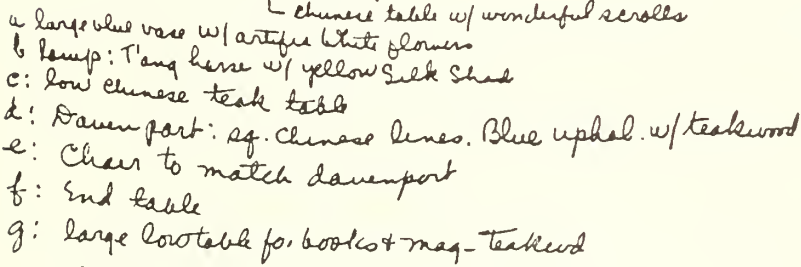 chinese table w/ wonderful scrolls
a large blue vase w/ artific white flowers
b Lamp: T'ang horse w/ yellow Silk Shad
c: low chinese teak table
d: Davenport: sq. chinese lines. Blue uphol. w/ teakwood
e: Chair to match davenport
f: End table
g: large low table for books + mag - Teakwd